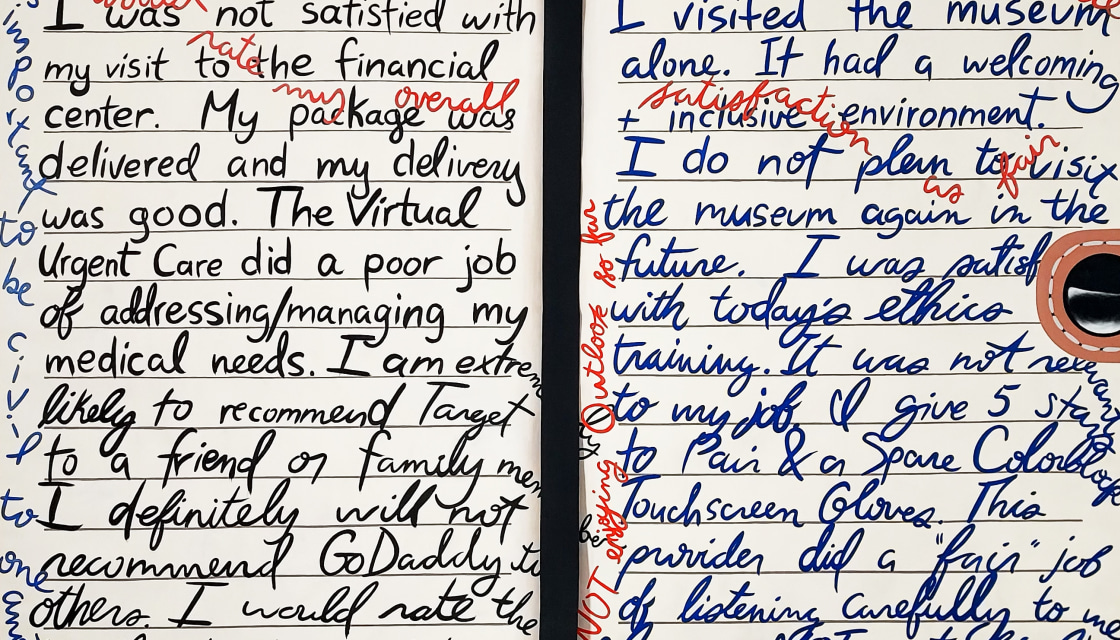 I was not satisfied with
my visit to the financial
center. My package was
delivered and my delivery
was good. The Virtual
Urgent Care did a poor job
of addressing/managing my
medical needs. I am extrem
likely to recommend Target
to a friend or family mem
I definitely will not
recommend GoDaddy to
others. I would rate the
important to be civil to one
rate my overall
I visited the museum
alone. It had a welcoming
+ inclusive environment.
I do not plan to visit
the museum again in the
future. I was satisf
with today's ethics
training. It was not relevant
to my job. I give 5 stars
to Pair & a Spare Colorblock
Touchscreen Gloves. This
provider did a "fair" job
of listening carefully to me
satisfaction as fair
NOT enjoying Outlook so far